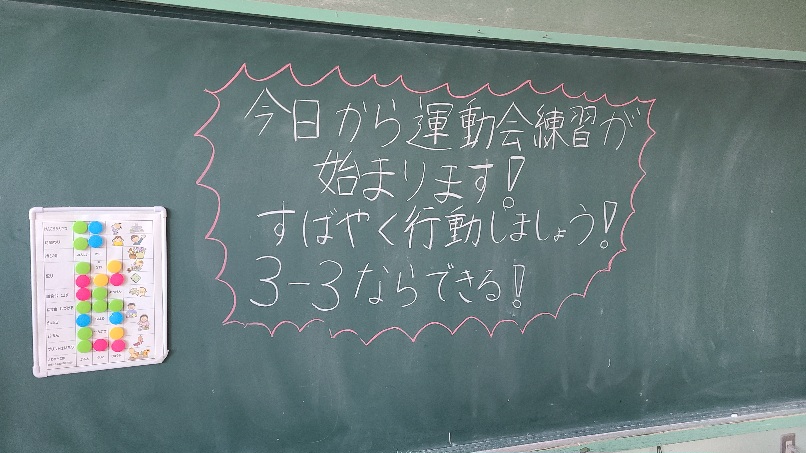 今日から運動会練習が
始まります!
すばやく行動しましょう!
3-3ならできる!